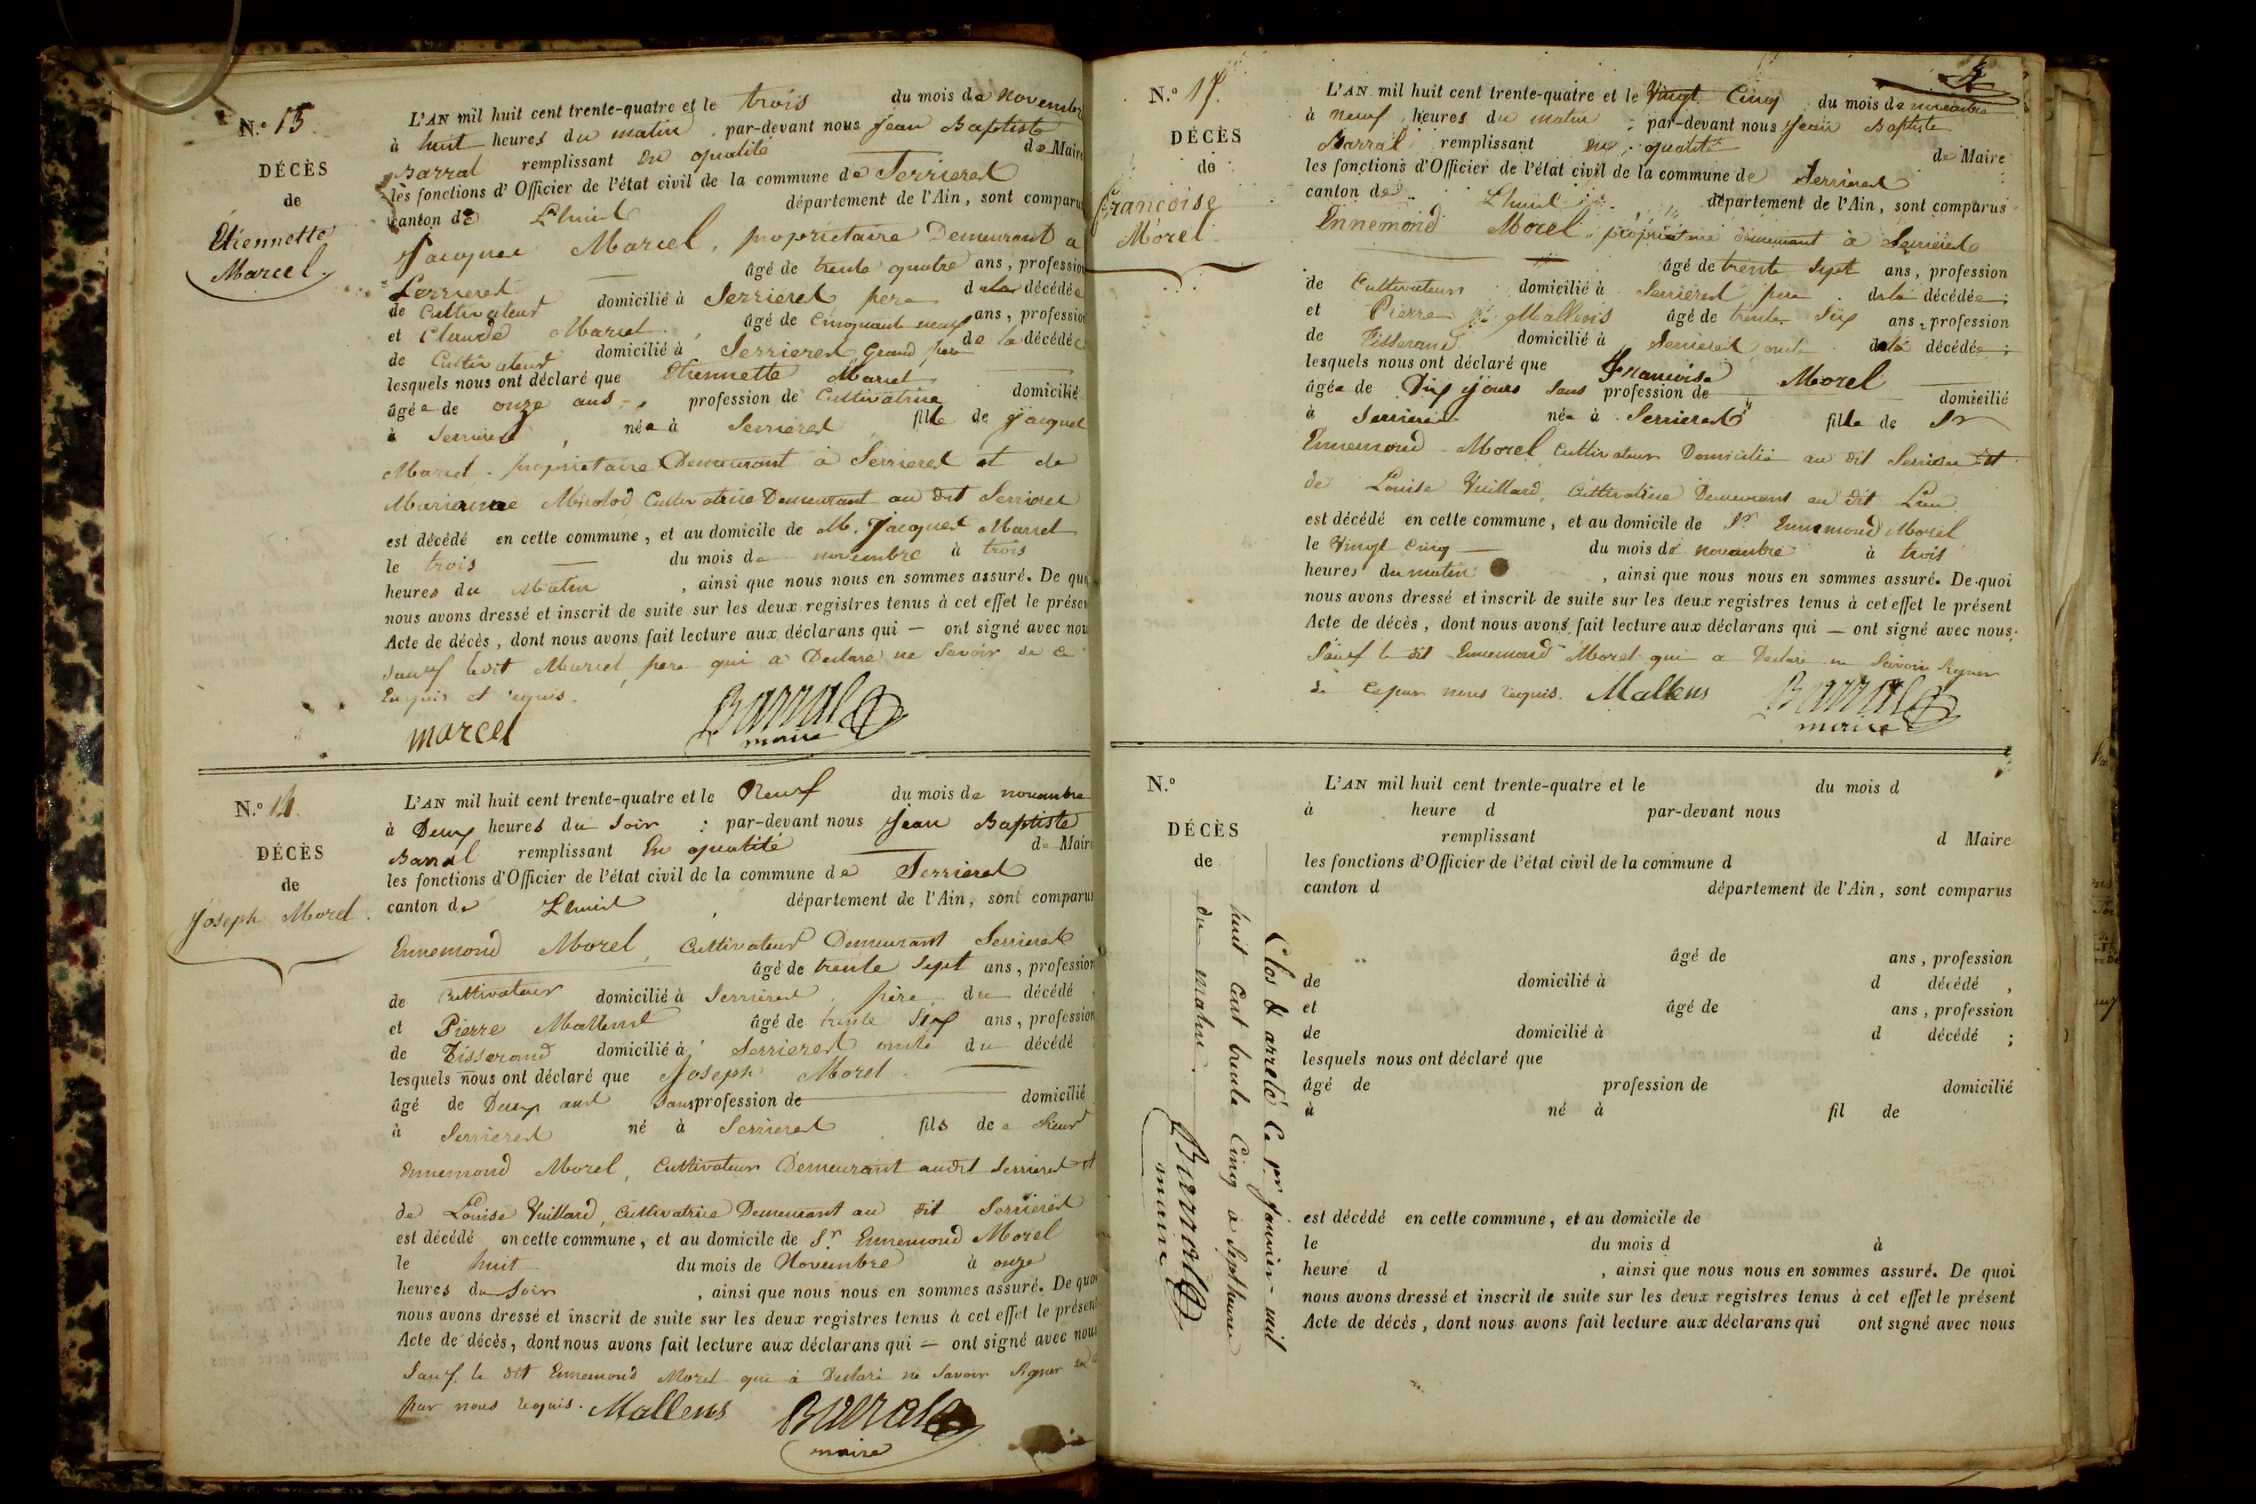 N.º 15.
DÉCÈS
de
Étiennette
Marcel.
L'AN mil huit cent trente-quatre et le trois du mois de novembre
à huit heures du matin, par-devant nous Jean Baptiste
Barral remplissant en qualité de Maire
les fonctions d'Officier de l'état civil de la commune de Serrieres
canton de Lhuis département de l'Ain, sont comparus
Jacques Marcel, propriétaire Demeurant a
Serrieres âgé de trente quatre ans, profession
de Cultivateur domicilié à Serrieres pere de la décédée
et Claude Marcel, âgé de Cinquante neuf ans, profession
de Cultivateur domicilié à Serrieres, Grand pere de la décédée
lesquels nous ont déclaré que Etiennette Marcel
âgée de onze ans, profession de Cultivatrice domicilié
à Serrieres, née à Serrieres fille de Jacques
Marcel, propriétaire Demeurant à Serrieres et de
Marienne Cultivatrice Demeurant au dit Serrieres
est décédé en cette commune, et au domicile de M. Jacques Marcel
le trois du mois de novembre à trois
heures du Matin, ainsi que nous nous en sommes assuré. De quoi
nous avons dressé et inscrit de suite sur les deux registres tenus à cet effet le présent
Acte de décès, dont nous avons fait lecture aux déclarans qui — ont signé avec nous
Sauf ledit Marcel, pere qui a Declaré ne Savoir de ce
Enquis et requis.
marcel Barral
maire
N.º 16.
DÉCÈS
de
Joseph Morel.
L'AN mil huit cent trente-quatre et le Neuf du mois de novembre
à Deux heures du Soir : par-devant nous Jean Baptiste
Barral remplissant En qualité de Maire
les fonctions d'Officier de l'état civil de la commune de Serrieres
canton de Lhuis, département de l'Ain, sont comparus
Ennemond Morel, Cultivateur Demeurant Serrieres
âgé de trente Sept ans, profession
de Cultivateur domicilié à Serrieres, père, du décédé
et Pierre Mallens âgé de trente Six ans, profession
de Tisserand domicilié à Serrieres oncle du décédé
lesquels nous ont déclaré que Joseph Morel
âgé de Deux ans Sans profession de domicilié
à Serrieres né à Serrieres fils de Sieur
Ennemond Morel, Cultivateur Demeurant audit Serrieres et
de Louise Vuillard, Cultivatrice Demeurant au dit Serrieres
est décédé en cette commune, et au domicile de Sr. Ennemond Morel
le huit du mois de Novembre à onze
heures du Soir, ainsi que nous nous en sommes assuré. De quoi
nous avons dressé et inscrit de suite sur les deux registres tenus à cet effet le présent
Acte de décès, dont nous avons fait lecture aux déclarans qui — ont signé avec nous
Sauf le dit Ennemond Morel qui à Declaré ne Savoir Signer
par nous requis. Mallens Barral
maire
N.º 17.
DÉCÈS
de
Françoise
Morel
L'AN mil huit cent trente-quatre et le Vingt Cinq du mois de novembre
à neuf heures du matin : par-devant nous Jean Baptiste
Barral remplissant en qualité de Maire
les fonctions d'Officier de l'état civil de la commune de Serrieres
canton de Lhuis département de l'Ain, sont comparus
Ennemond Morel, propriétaire demeurant à Serrieres
âgé de trente Sept ans, profession
de Cultivateur domicilié à Serrieres pere de la décédée;
et Pierre Mallens âgé de trente Six ans, profession
de Tisserand domicilié à Serrieres oncle de la décédée;
lesquels nous ont déclaré que Francoise Morel
âgée de Dix jours Sans profession de domicilié
à Serrieres née à Serrieres fille de Sr
Ennemond Morel Cultivateur Domicilié au dit Serrieres et
de Louise Vuillard, Cultivatrice Demeurant au dit Lieu
est décédé en cette commune, et au domicile de Sr Ennemond Morel
le Vingt Cinq du mois de novembre à trois
heures du matin, ainsi que nous nous en sommes assuré. De quoi
nous avons dressé et inscrit de suite sur les deux registres tenus à cet effet le présent
Acte de décès, dont nous avons fait lecture aux déclarans qui — ont signé avec nous.
Sauf le dit Ennemond Morel qui a Declaré ne Savoir Signer
de ce par nous requis. Mallens Barral
maire
N.º
DÉCÈS
de
L'AN mil huit cent trente-quatre et le du mois d
à heure d par-devant nous
remplissant d Maire
les fonctions d'Officier de l'état civil de la commune d
canton d département de l'Ain, sont comparus
âgé de ans, profession
de domicilié à d décédé,
et âgé de ans, profession
de domicilié à d décédé;
lesquels nous ont déclaré que
âgé de profession de domicilié
à né à fil de
est décédé en cette commune, et au domicile de
le du mois d à
heure d, ainsi que nous nous en sommes assuré. De quoi
nous avons dressé et inscrit de suite sur les deux registres tenus à cet effet le présent
Acte de décès, dont nous avons fait lecture aux déclarans qui ont signé avec nous
Clos & arreté Ce pr janvier mil
huit Cent trente Cinq à Sept heures
du matin.
Barral
maire